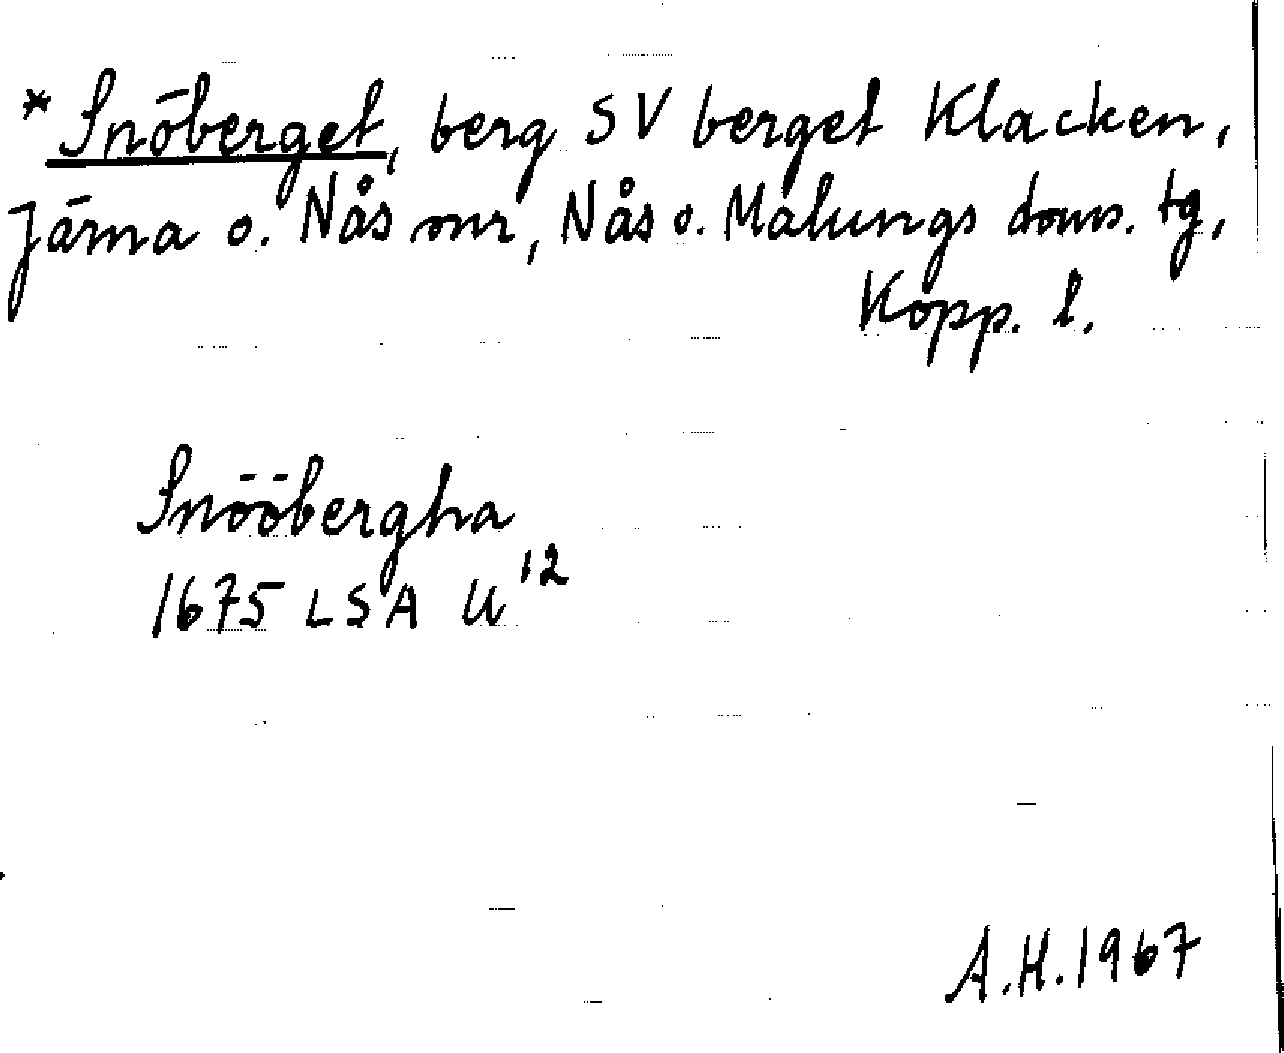 * Snöberget, berg SV berget Klacken,
Järna o. Nås snr, Nås o. Malungs doms. tg,
Kopp. l.
Snööbergha
1675 LSA U¹²
A.H. 1967